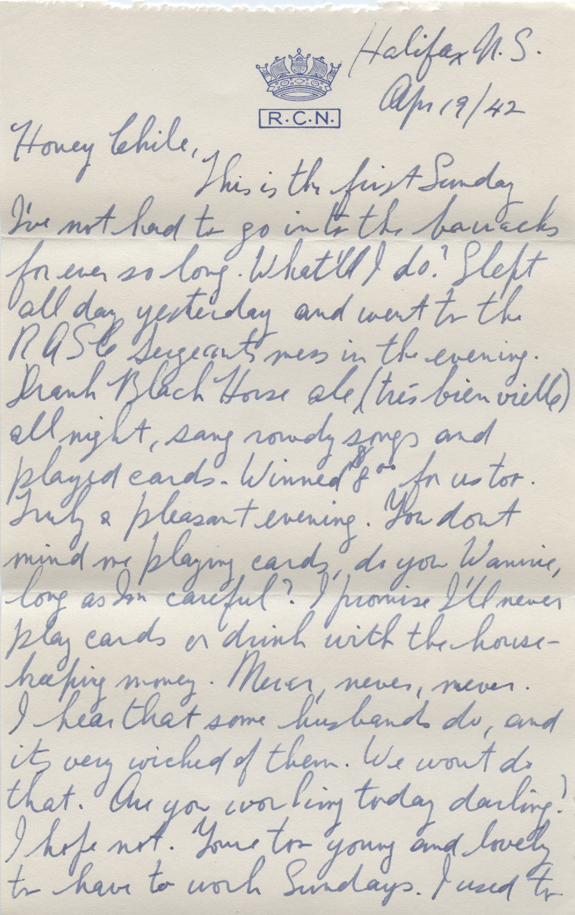 Halifax N.S.
R.C.N.
Apr 19/42
Honey Chile,
This is the first Sunday
I've not had to go into the barracks
for ever so long. What'll I do? Slept
all day yesterday and went to the
RASC Sergeants mess in the evening.
Drank Black Horse ale (trés bien vielle)
all night, sang rowdy songs and
played cards. Winned $8.00 for us too.
Truly a pleasant evening. You don't
mind me playing cards, do you
long as I'm careful? I promise I'll never
play cards or drink with the house-
keeping money. Never, never, never.
I hear that some husbands do, and
its very wicked of them. We wont do
that. Are you working today darling?
I hope not. Youre too young and lovely
to have to work Sundays. I used to